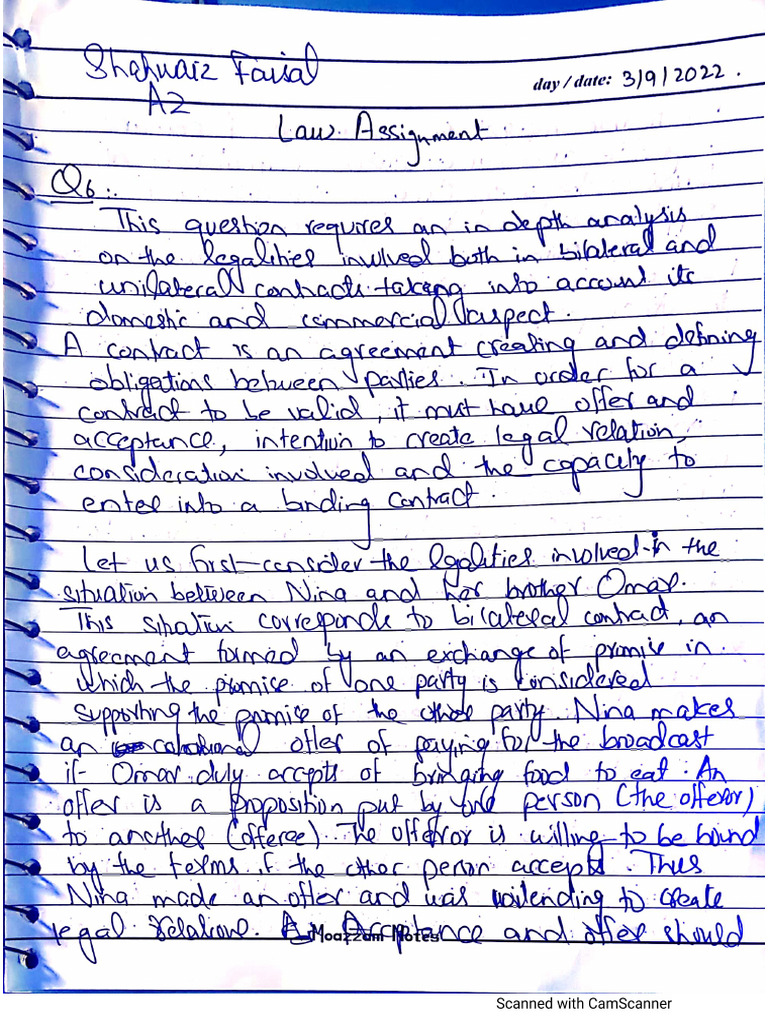 Shahwaiz Faisal
day / date: 3/9/2022.
A2
Law Assignment
Q6:.
This question requires an in depth analysis
on the legalities involved both in bilateral and
unilateral contracts taking into account its
domestic and commercial aspect.
A contract is an agreement creating and defining
obligations between parties. In order for a
contract to be valid, it must have offer and
acceptance, intention to create legal relation,
consideration involved and the capacity to
enter into a binding contract.
Let us first consider the legalities involved in the
situation between Nina and her brother Omar.
This situation corresponds to bilateral contract, an
agreement formed by an exchange of promise in
which the promise of one party is considered
supporting the promise of the other party. Nina makes
an offer of paying for the broadcast
if Omar duly accepts of bringing food to eat. An
offer is a proposition put by one person (the offeror)
to another (offeree). The offeror is willing to be bound
by the terms if the other person accepts. Thus
Nina made an offer and was intending to create
legal relations. Acceptance and offer should
Moazzam Notes
Scanned with CamScanner